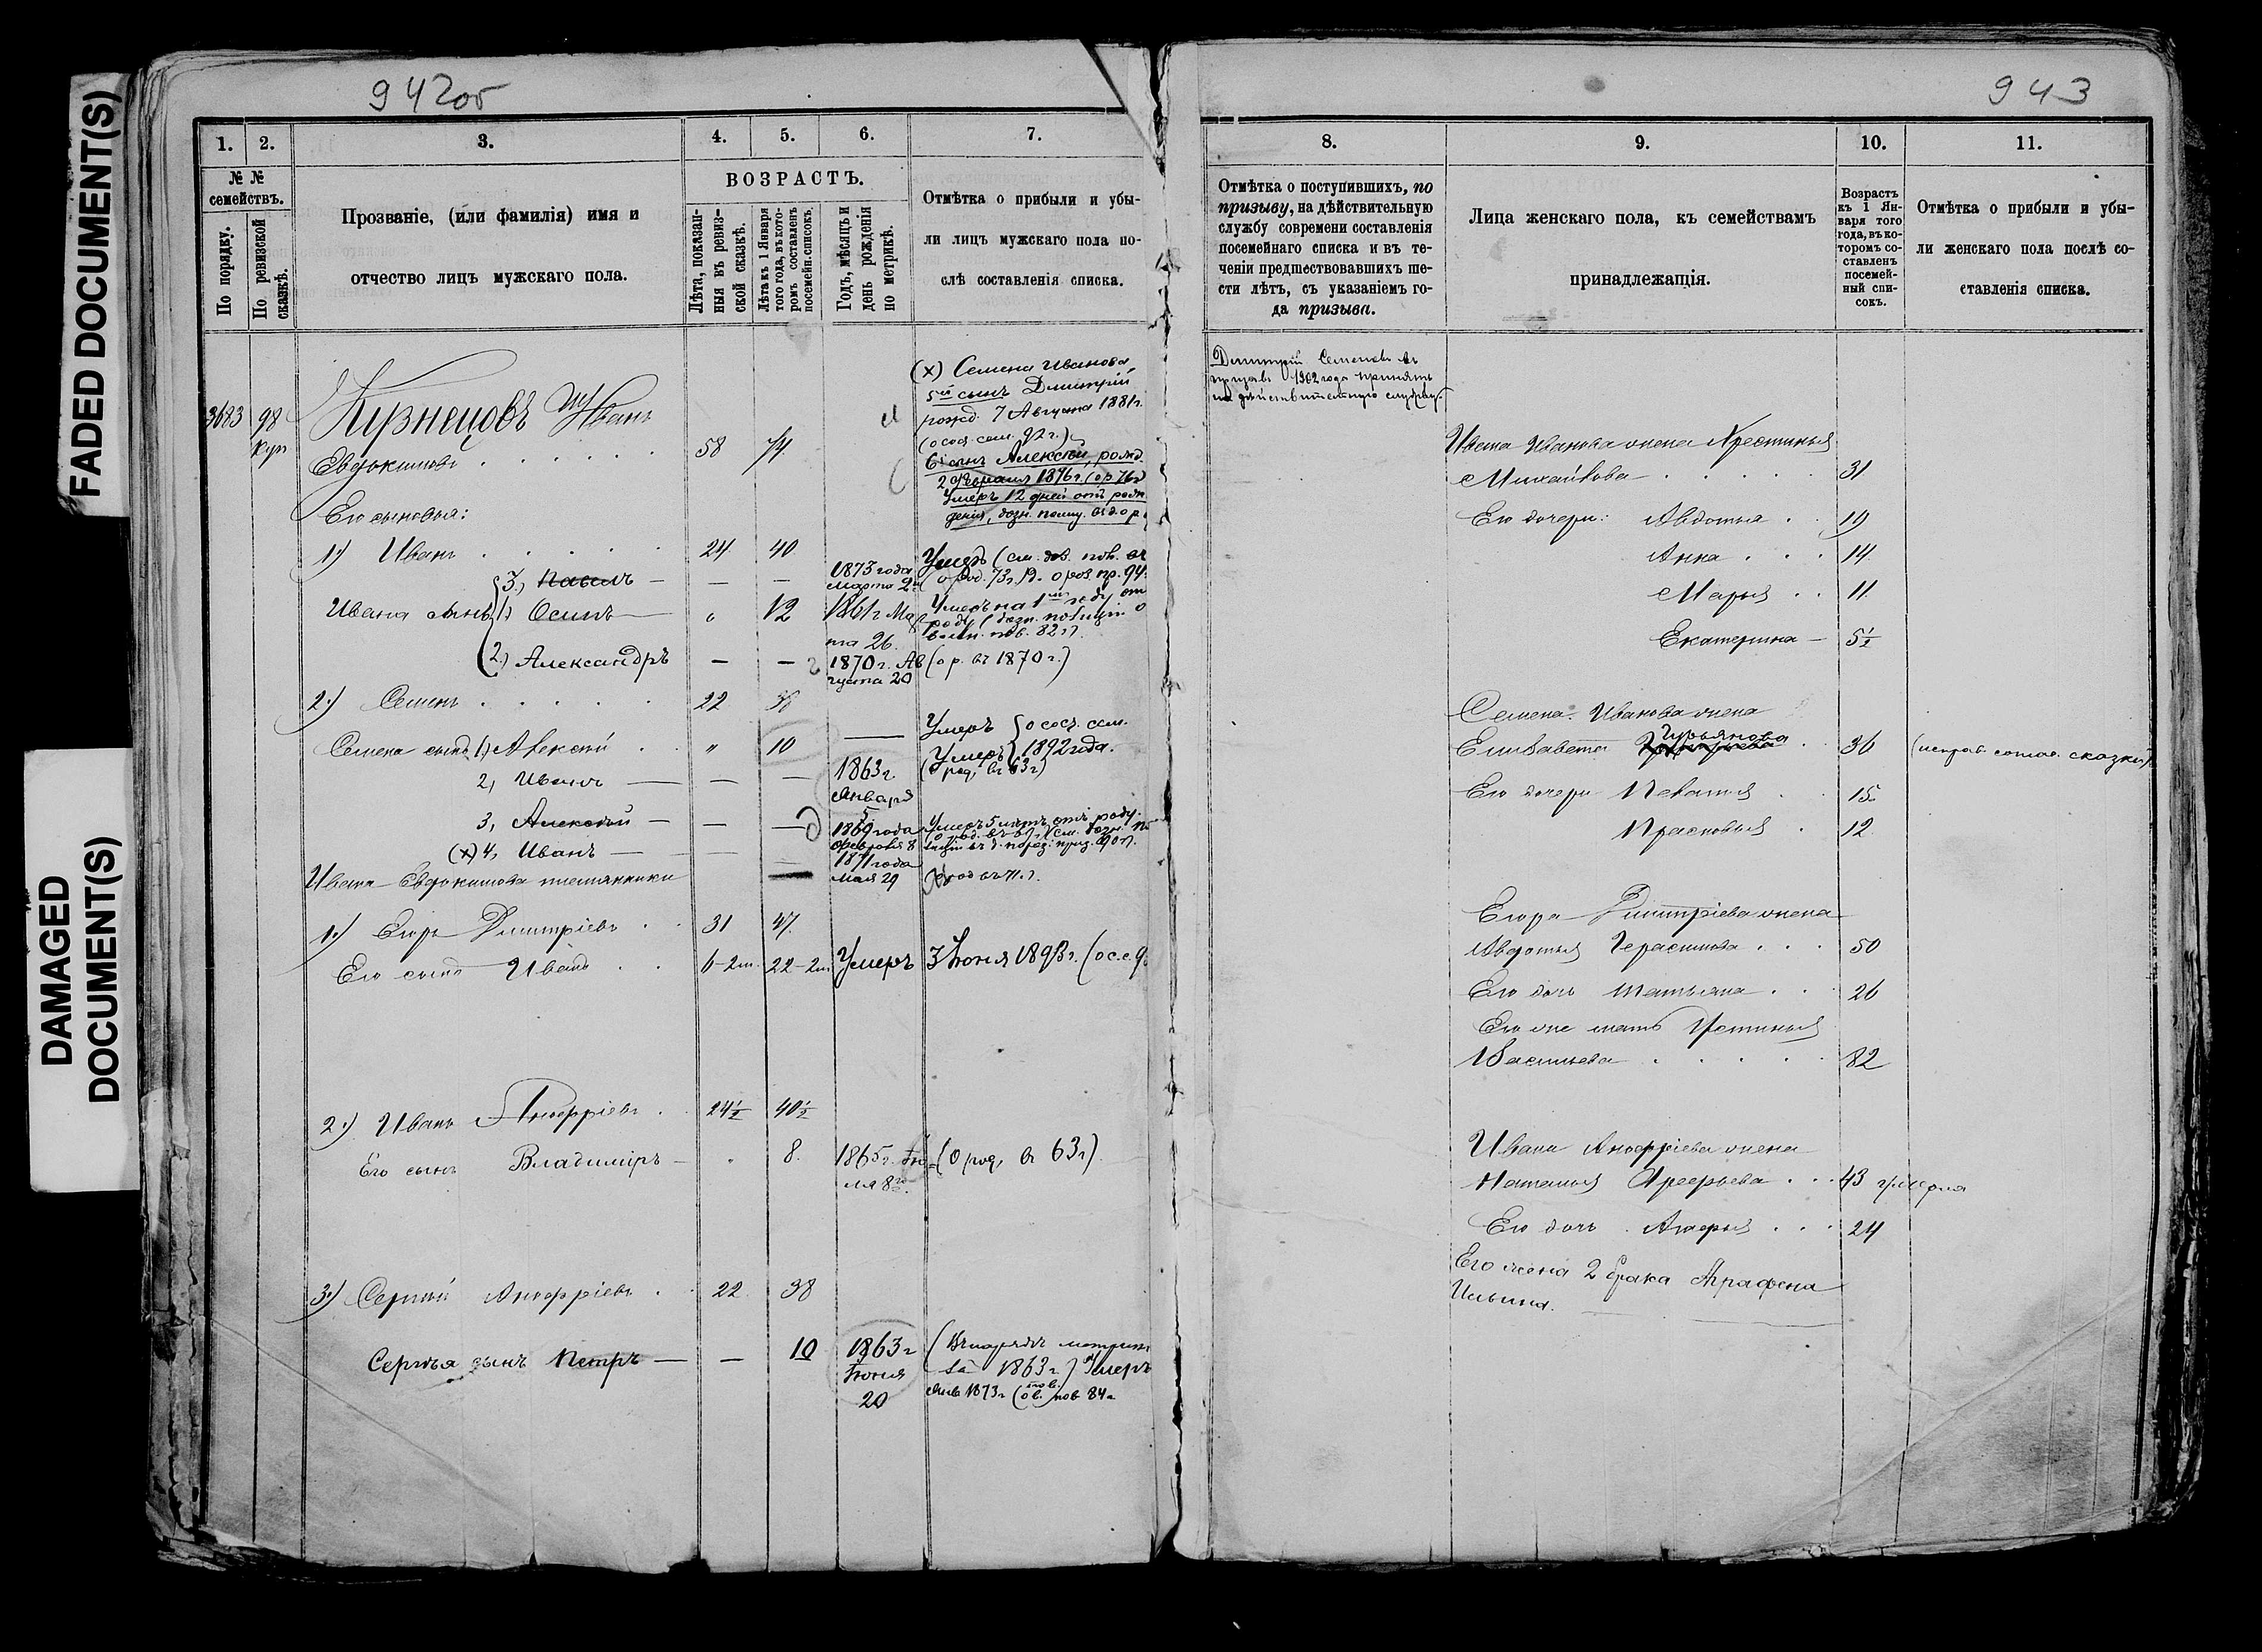 FADED DOCUMENT(S)
DAMAGED
DOCUMENT(S)
942об
1.
2.
3.
4.
5.
6.
7.
№ №
семействъ.
По порядку.
По ревизской
сказкѣ.
Прозваніе, (или фамилія) имя и
отчество лицъ мужскаго пола.
ВОЗРАСТЪ.
Лѣта, показан-
ныя въ ревиз-
ской сказкѣ.
Лѣта къ 1 Января
того года, въ кото-
ромъ составленъ
посемейн. списокъ.
Годъ, мѣсяцъ и
день рожденія
по метрикѣ.
Отмѣтка о прибыли и убы-
ли лицъ мужскаго пола по-
слѣ составленія списка.
3683
98
Кузнецовъ Иванъ
Евдокимовъ
58
74
(х) Семена Иванова
5й сынъ Дмитрій
рожд. 7 Августа 1881г.
6й сынъ Алексѣй, рожд.
2 Февраля 1876г. (о р 76г)
Умеръ 12 дней отъ рож
денія, дозн. полиц.
Его сыновья:
1.) Иванъ
24
40
Умеръ
3, Павелъ
— —
1873 года
Марта
Ивана сынъ 1) Осипъ
12
1861г Мар
та 26.
Умеръ на 1мъ году от
роду (дозн. полиціи о
воин. пов. 82г)
2.) Александръ
— —
1870г. Ав
густа 20
(о р. въ 1870г.)
2.) Семенъ
22
38
Умеръ
о сост. сем.
1892 года.
Семена сынъ 1.) Алексѣй
"
10
Умеръ
2, Иванъ
— —
1863г.
Января
5
(о род, въ 63г)
3, Алексѣй
— —
1869 года
Февраля 8
Умеръ 5 лѣтъ отъ роду.
(х) 4, Иванъ
— —
1871 года
Мая 29
Ивана Евдокимова племянники
1.) Егоръ Дмитріевъ
31
47.
Его сынъ Иванъ
6-2м.
22-2м.
Умеръ 3 Іюня 1893г.
2.) Иванъ Ануфріевъ
24½
40½
Его сынъ Владиміръ
8.
1865г. Ію-
ля 8го.
(О род, въ 63г)
3.) Сергѣй Ануфріевъ
22
38
Сергѣя сынъ Петръ
—
10
1863г
Іюня
20
за 1863г) Умеръ
1873г
943
8.
9.
10.
11.
Отмѣтка о поступившихъ, по
призыву, на дѣйствительную
службу современи составленія
посемейнаго списка и въ те-
ченіи предшествовавшихъ ше-
сти лѣтъ, съ указаніемъ го-
да призыва.
Лица женскаго пола, къ семействамъ
принадлежащія.
Возрастъ
къ 1 Ян-
варя того
года, въ ко-
торомъ со-
ставленъ
посемей-
ный спи-
сокъ.
Отмѣтка о прибыли и убы-
ли женскаго пола послѣ со-
ставленія списка.
Дмитрій Семеновъ въ
призывъ 1902 года принятъ
на дѣйствительную службу.
Ивана Иванова жена Крестинья
Михайлова
31
Его дочери: Авдотья
19
Анна
14.
Марья
11.
Екатерина
5½
Семена Иванова жена
Елизавета Гурьянова
36
(исправ. соглас. сказки)
Его дочери Пелагея
15.
Прасковья
12.
Егора Дмитріева жена
Авдотья Герасимова
50
Его дочь Татьяна
26
Его же мать Устинья
Васильева
82
Ивана Ануфріева жена
Наталья Арефьева
43 умерла
Его дочь
24
Его жена 2 брака Аграфена
Ильина.